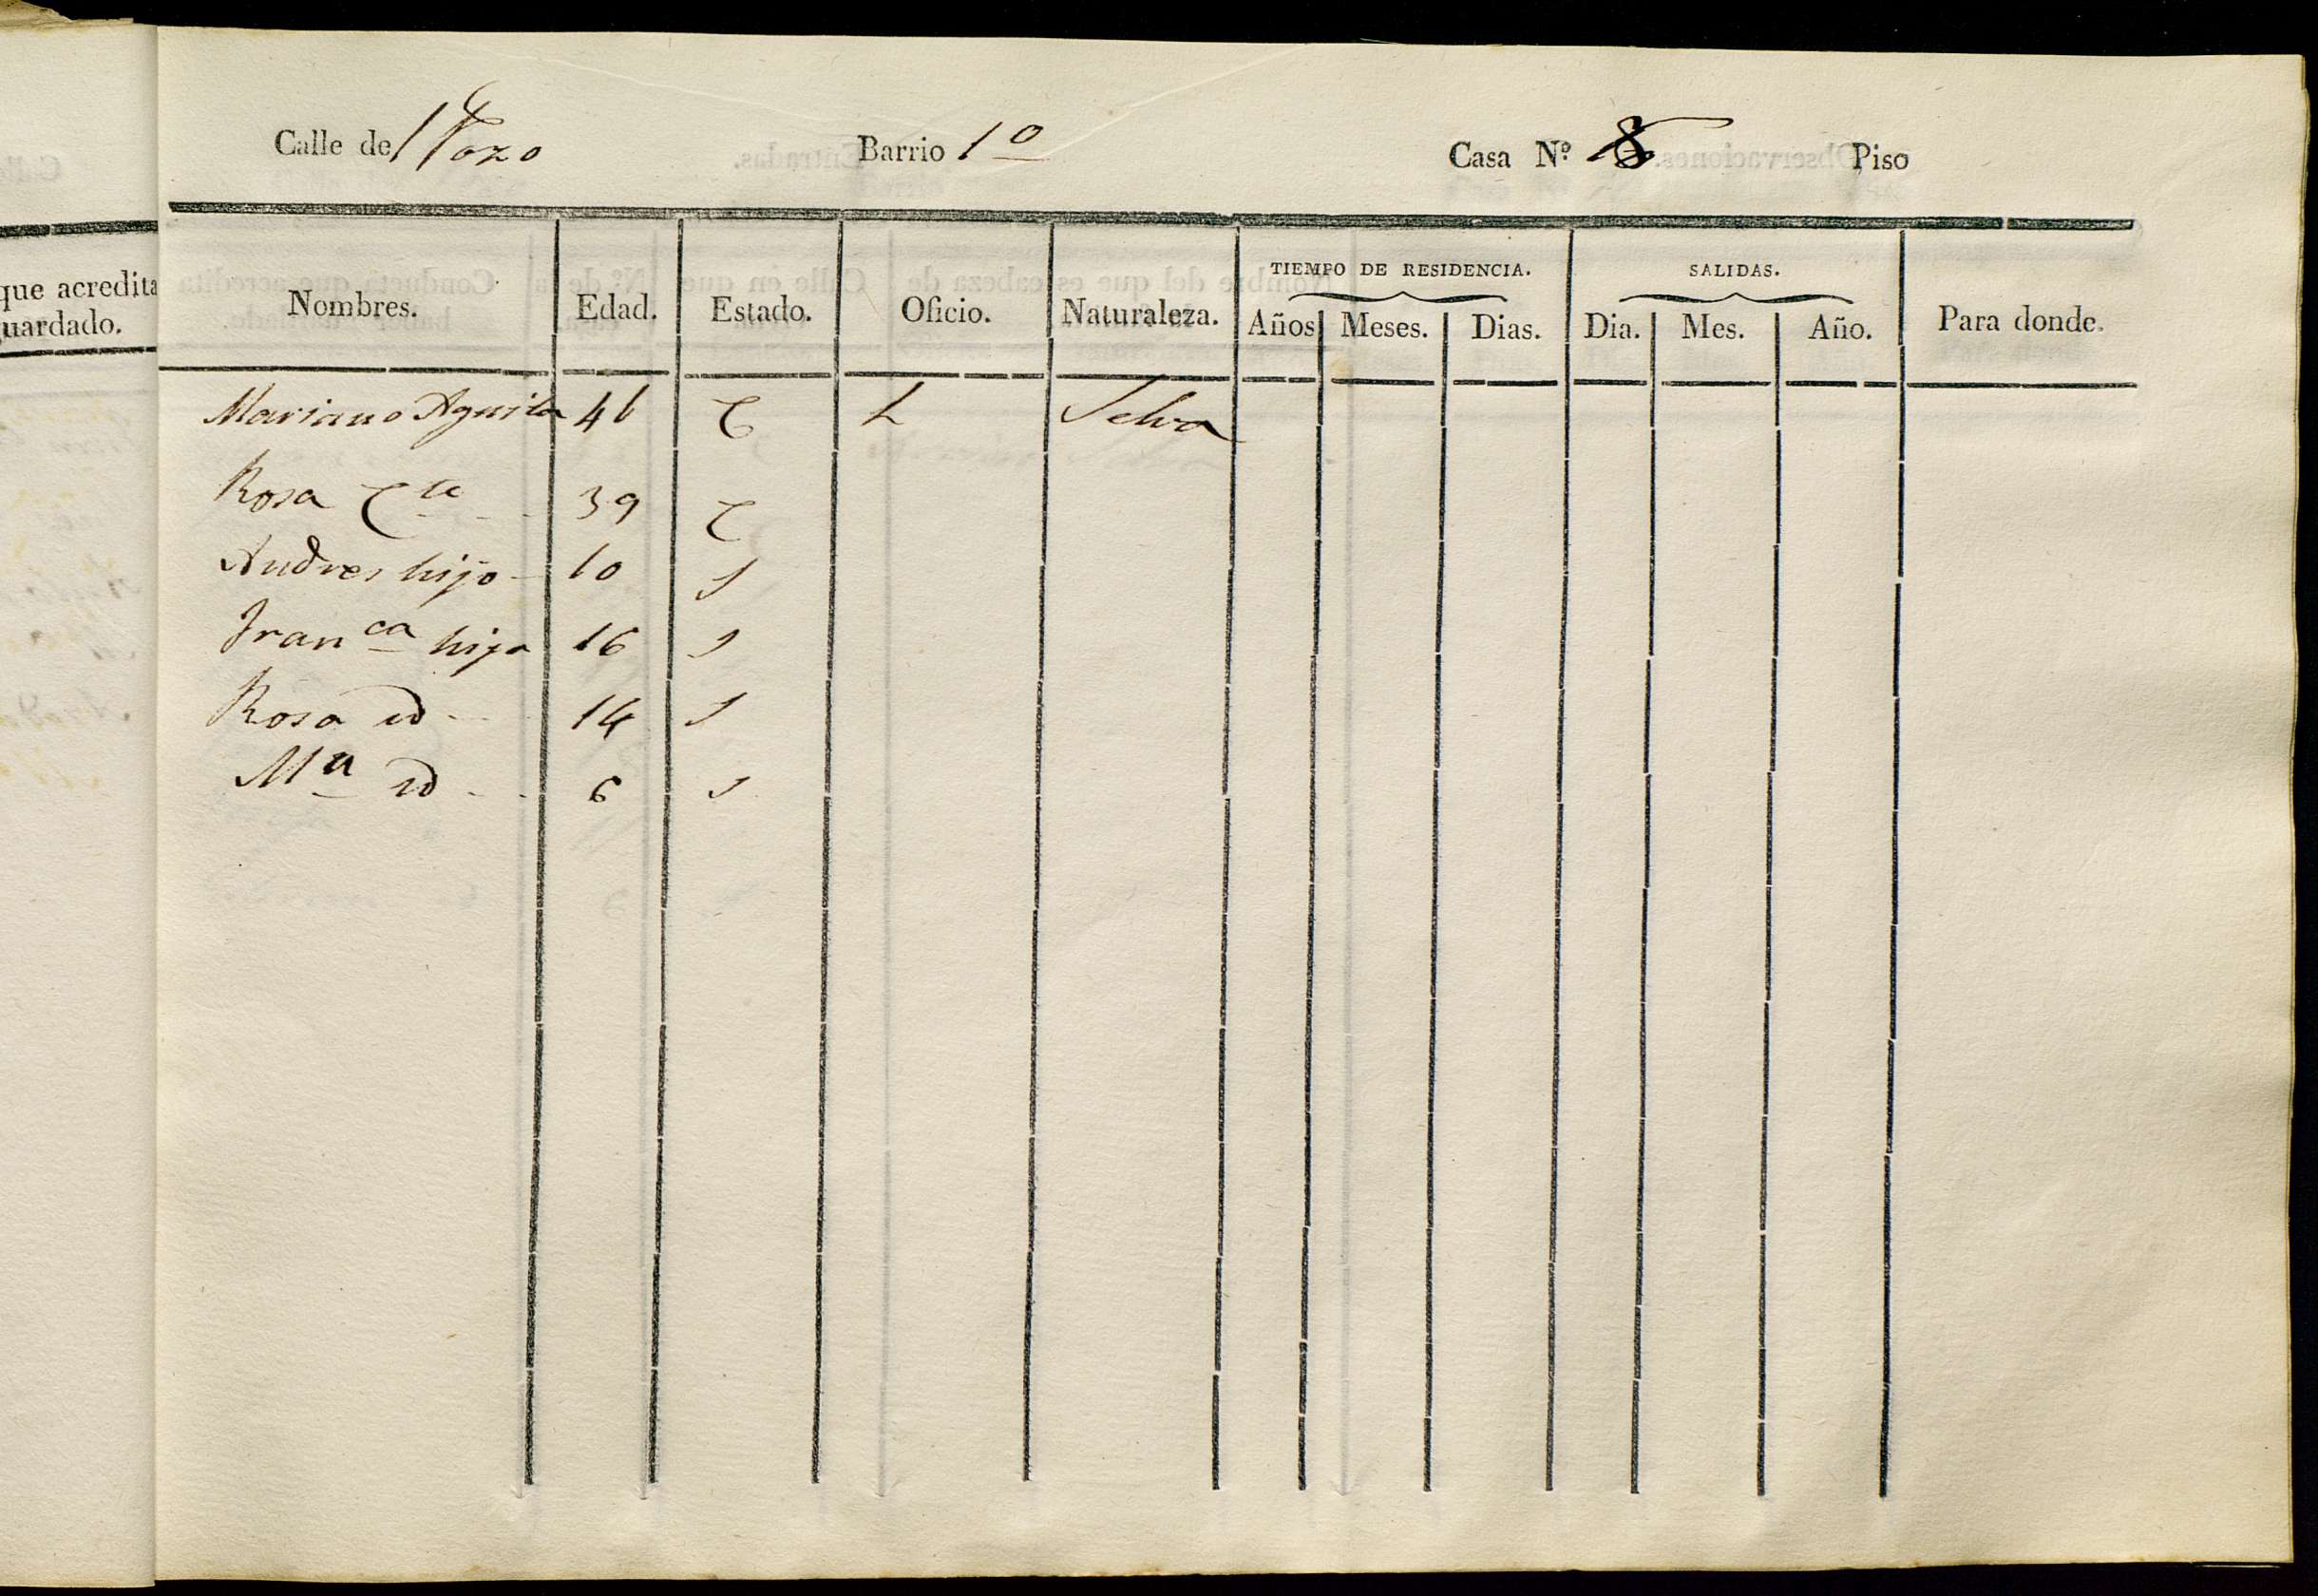 que acredita
uardado.
Calle del Pozo Barrio 1º Casa Nº 8 Piso
TIEMPO DE RESIDENCIA. SALIDAS.
Nombres. Edad. Estado. Oficio. Naturaleza. Años Meses. Dias. Dia. Mes. Año. Para donde.
Mariano Aguila 46 C L Selva
Rosa Cte 39 C
Andres hijo 10 S
Franca hija 16 S
Rosa id 14 S
Ma id 6 S